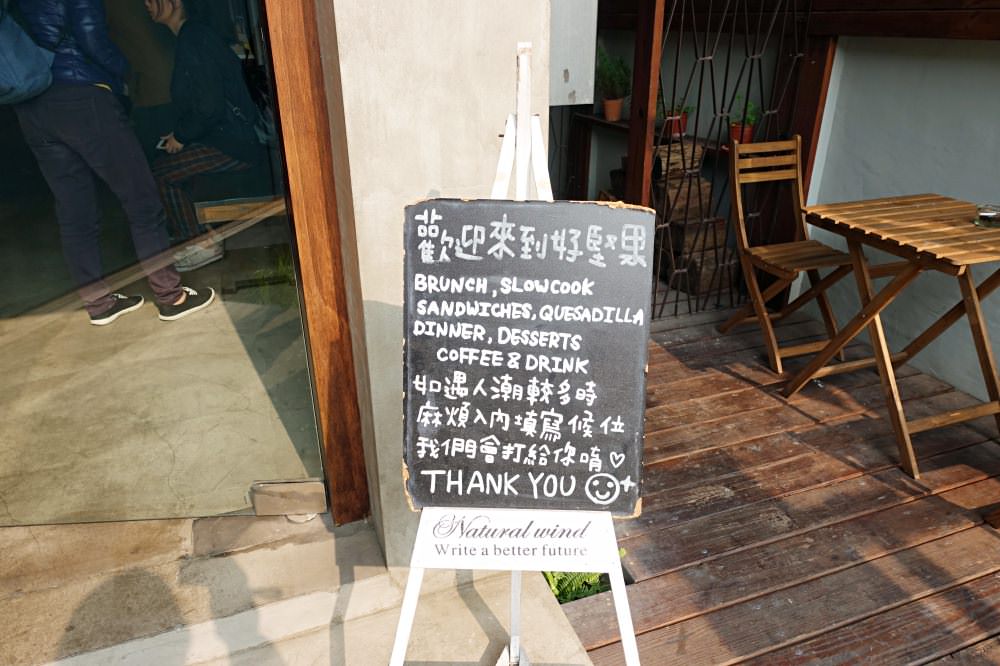 歡迎來到好堅果
BRUNCH, SLOWCOOK
SANDWICHES, QUESADILLA
DINNER, DESSERTS
COFFEE & DRINK
如遇人潮較多時
麻煩入內填寫候位
我們會打給你唷♡
THANK YOU ☺
Natural wind
Write a better future